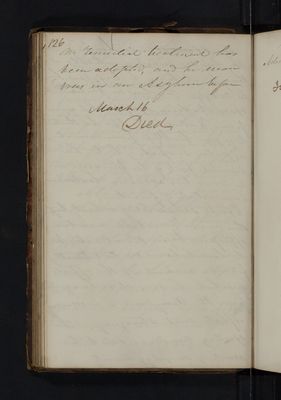 126
No remedial treatment has
been adopted, and he never
was in an Asylum before
March 16
Died